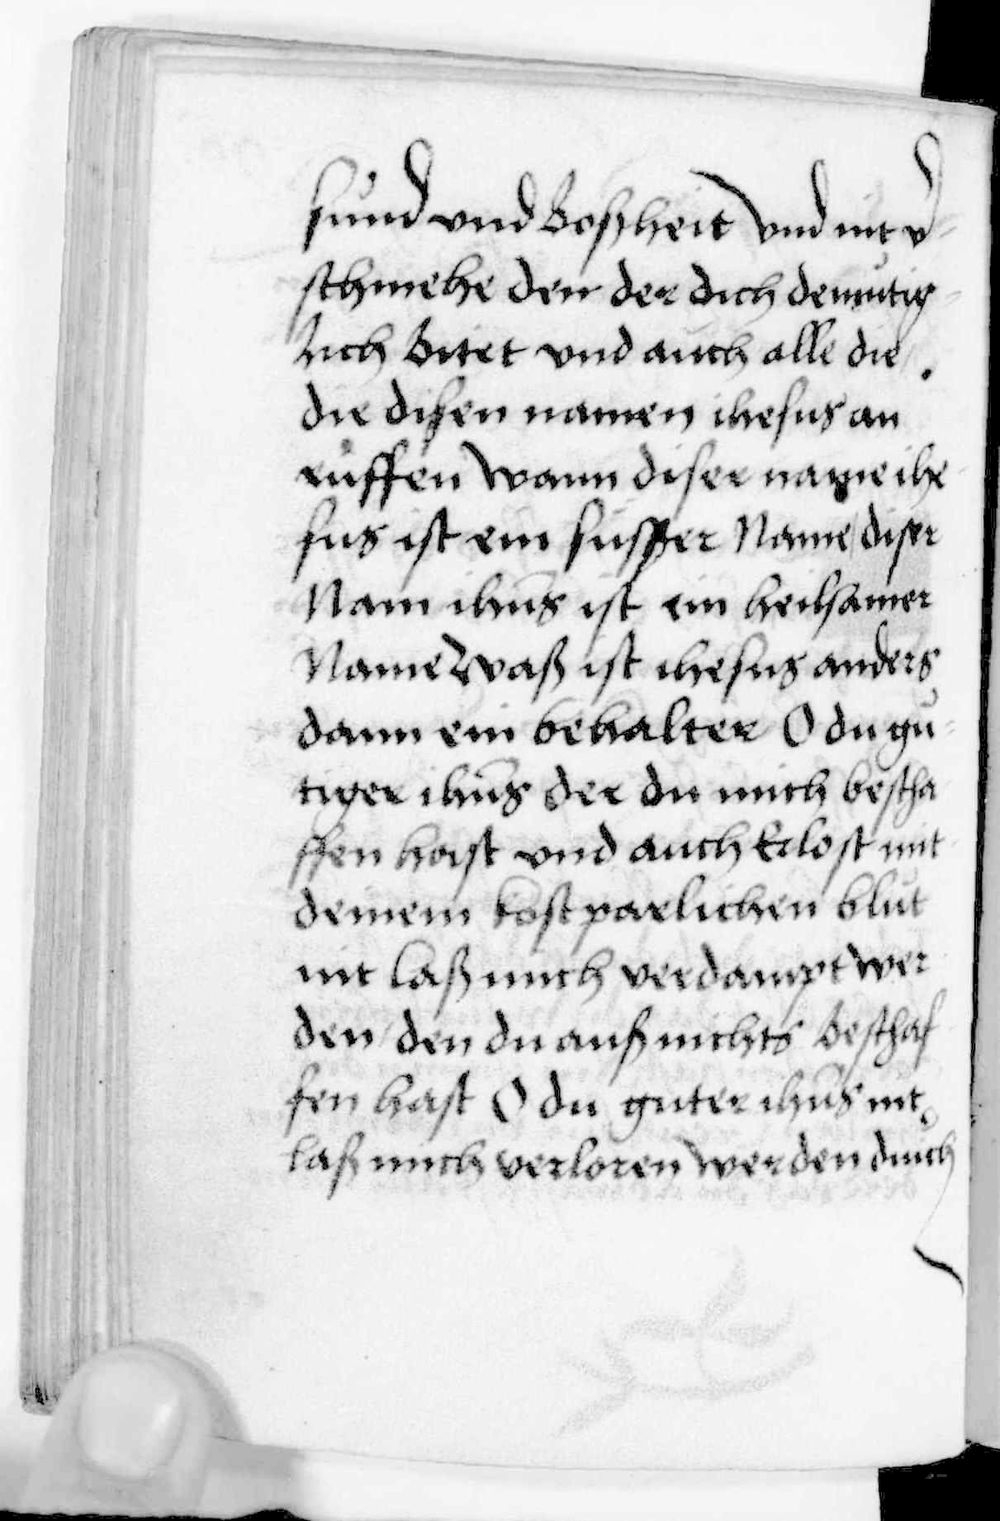 sund vnd Boßheit vnd nit v̾-
schmehe den der dich demutig-
lich Bitet vnd auch alle die
die disen namen ihesus an
ruffen wann diser name ihe
sus ist ein susser Name / diser
Nam ihūs ist ein heilsamer
Name waß ist ihesus anders
dann ein behalter O du gu-
tiger ihūs der du mich bescha
ffen hast vnd auch Erlost mit
deinem kostparlichen blut
nit laß mich verdampt wer
den / den du auß nichts beschaf
fen hast O du guter ihūs nit
laß mich verloren werden durch